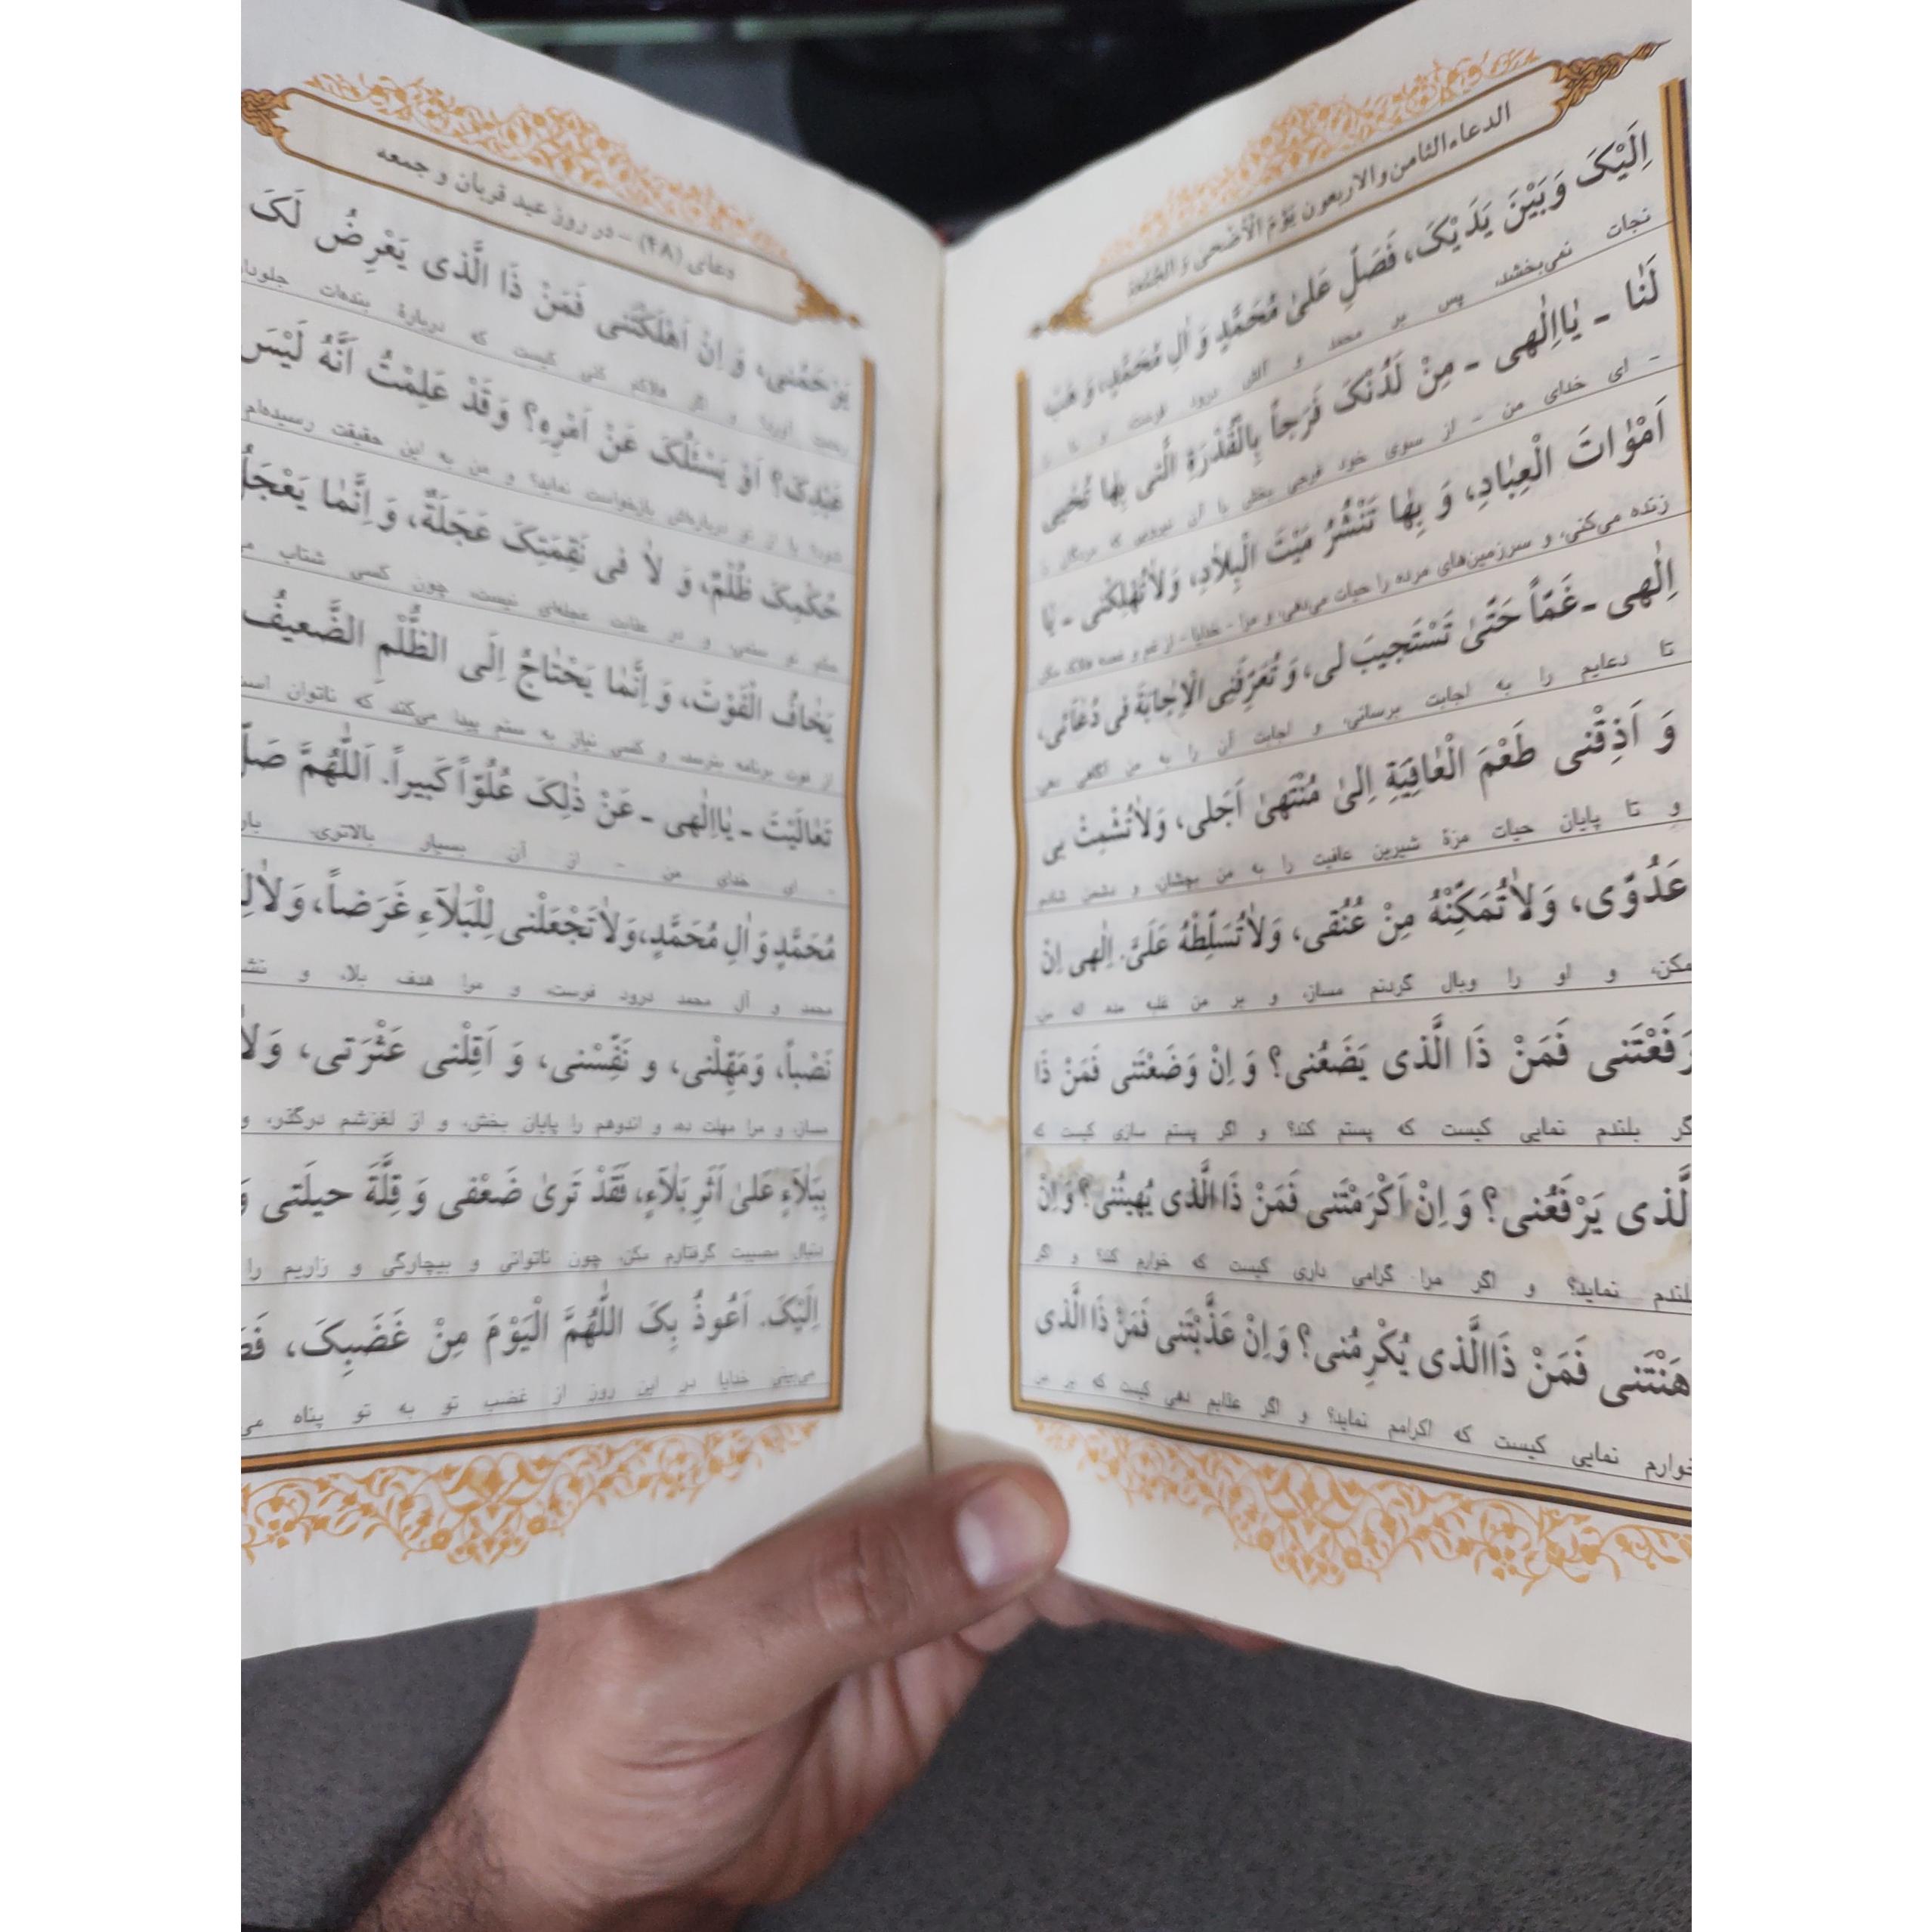 الدعاء الثامن والاربعون یَوْمَ الْاَضْحیٰ وَ الجُمُعَة
اِلَیْکَ وَبَیْنَ یَدَیْکَ، فَصَلِّ عَلیٰ مُحَمَّدٍ وَ اٰلِ مُحَمَّدٍ، وَ هَبْ
نجات نمی‌بخشد، پس بر محمد و آلش درود فرست و
لَنٰا ـ یٰااِلٰهی ـ مِنْ لَدُنْکَ فَرَجاً بِالْقُدْرَةِ الَّتی بِهٰا تُحْیی
- ای خدای من - از سوی خود فرجی بخش با آن نیرویی که مردگان را
اَمْوٰاتَ الْعِبٰادِ، وَ بِهٰا تَنْشُرُ مَیْتَ الْبِلاٰدِ، وَلاٰتُهْلِکْنی ـ یٰا
زنده می‌کنی، و سرزمین‌های مرده را حیات می‌دهی، و مرا - خدایا - از غم و غصه هلاک مکن
اِلٰهی ـ غَمّاً حَتّیٰ تَسْتَجیبَ لی، وَ تُعَرِّفَنِی الْاِجٰابَةَ فی دُعٰائی،
تا دعایم را به اجابت برسانی، و اجابت آن را به من آگاهی دهی
وَ اَذِقْنی طَعْمَ الْعٰافِیَةِ اِلیٰ مُنْتَهیٰ اَجَلی، وَلاٰتُشْمِتْ بی
و تا پایان حیات مزهٔ شیرین عافیت را به من بچشان، و دشمن شادم
عَدُوّی، وَلاٰتُمَکِّنْهُ مِنْ عُنُقی، وَلاٰتُسَلِّطْهُ عَلَیَّ. اِلٰهی اِنْ
مکن، و او را وبال گردنم مساز، و بر من غلبه مده. اله من
رَفَعْتَنی فَمَنْ ذَا الَّذی یَضَعُنی؟ وَ اِنْ وَضَعْتَنی فَمَنْ ذَا
گر بلندم نمایی کیست که پستم کند؟ و اگر پستم سازی کیست که
لَّذی یَرْفَعُنی؟ وَ اِنْ اَکْرَمْتَنی فَمَنْ ذَا الَّذی یُهینُنی؟ وَ اِنْ
بلندم نماید؟ و اگر مرا گرامی داری کیست که خوارم کند؟ و اگر
هَنْتَنی فَمَنْ ذَاالَّذی یُکْرِمُنی؟ وَ اِنْ عَذَّبْتَنی فَمَنْ ذَا الَّذی
خوارم نمایی کیست که اکرامم نماید؟ و اگر عذابم دهی کیست که بر من
دعای (۴۸) - در روز عید قربان و جمعه
یَرْحَمُنی، وَ اِنْ اَهْلَکْتَنی فَمَنْ ذَا الَّذی یَعْرِضُ لَکَ
رحمت آورد؟ و اگر هلاکم کنی کیست که دربارهٔ بنده‌ات
عَبْدِکَ؟ اَوْ یَسْئَلُکَ عَنْ اَمْرِهِ؟ وَقَدْ عَلِمْتُ اَنَّهُ لَیْسَ
شود؟ یا از تو درباره‌اش بازخواست نماید؟ و من به این حقیقت رسیده‌ام
حُکْمِکَ ظُلْمٌ، وَ لاٰ فی نَقِمَتِکَ عَجَلَةٌ، وَ اِنَّمٰا یَعْجَلُ
حکم تو ستمی، و در عقابت عجله‌ای نیست، چون کسی شتاب
یَخٰافُ الْفَوْتَ، وَ اِنَّمٰا یَحْتٰاجُ اِلَی الظُّلْمِ الضَّعیفُ
از فوت برنامه بترسد، و کسی نیاز به ستم پیدا می‌کند که ناتوان
تَعٰالَیْتَ ـ یٰااِلٰهی ـ عَنْ ذٰلِکَ عُلُوّاً کَبیراً. اَللّٰهُمَّ صَلِّ
- ای خدای من - از آن بسیار بالاتری. بار
مُحَمَّدٍ وَ اٰلِ مُحَمَّدٍ، وَلاٰتَجْعَلْنی لِلْبَلاٰءِ غَرَضاً، وَلاٰ
محمد و آل محمد درود فرست، و مرا هدف بلا، و
نَصْباً، وَمَهِّلْنی، و نَفِّسْنی، وَ اَقِلْنی عَثْرَتی، وَلاٰ
مساز، و مرا مهلت ده، و اندوهم را پایان بخش، و از لغزشم درگذر، و
بِبَلاٰءٍ عَلیٰ اَثَرِ بَلاٰءٍ، فَقَدْ تَریٰ ضَعْفی وَ قِلَّةَ حیلَتی وَ
دنبال مصیبت گرفتارم مکن، چون ناتوانی و بیچارگی و زاریم را
اِلَیْکَ. اَعُوذُ بِکَ اللّٰهُمَّ الْیَوْمَ مِنْ غَضَبِکَ،
می‌بینی خدایا در این روز از غضب تو به تو پناه